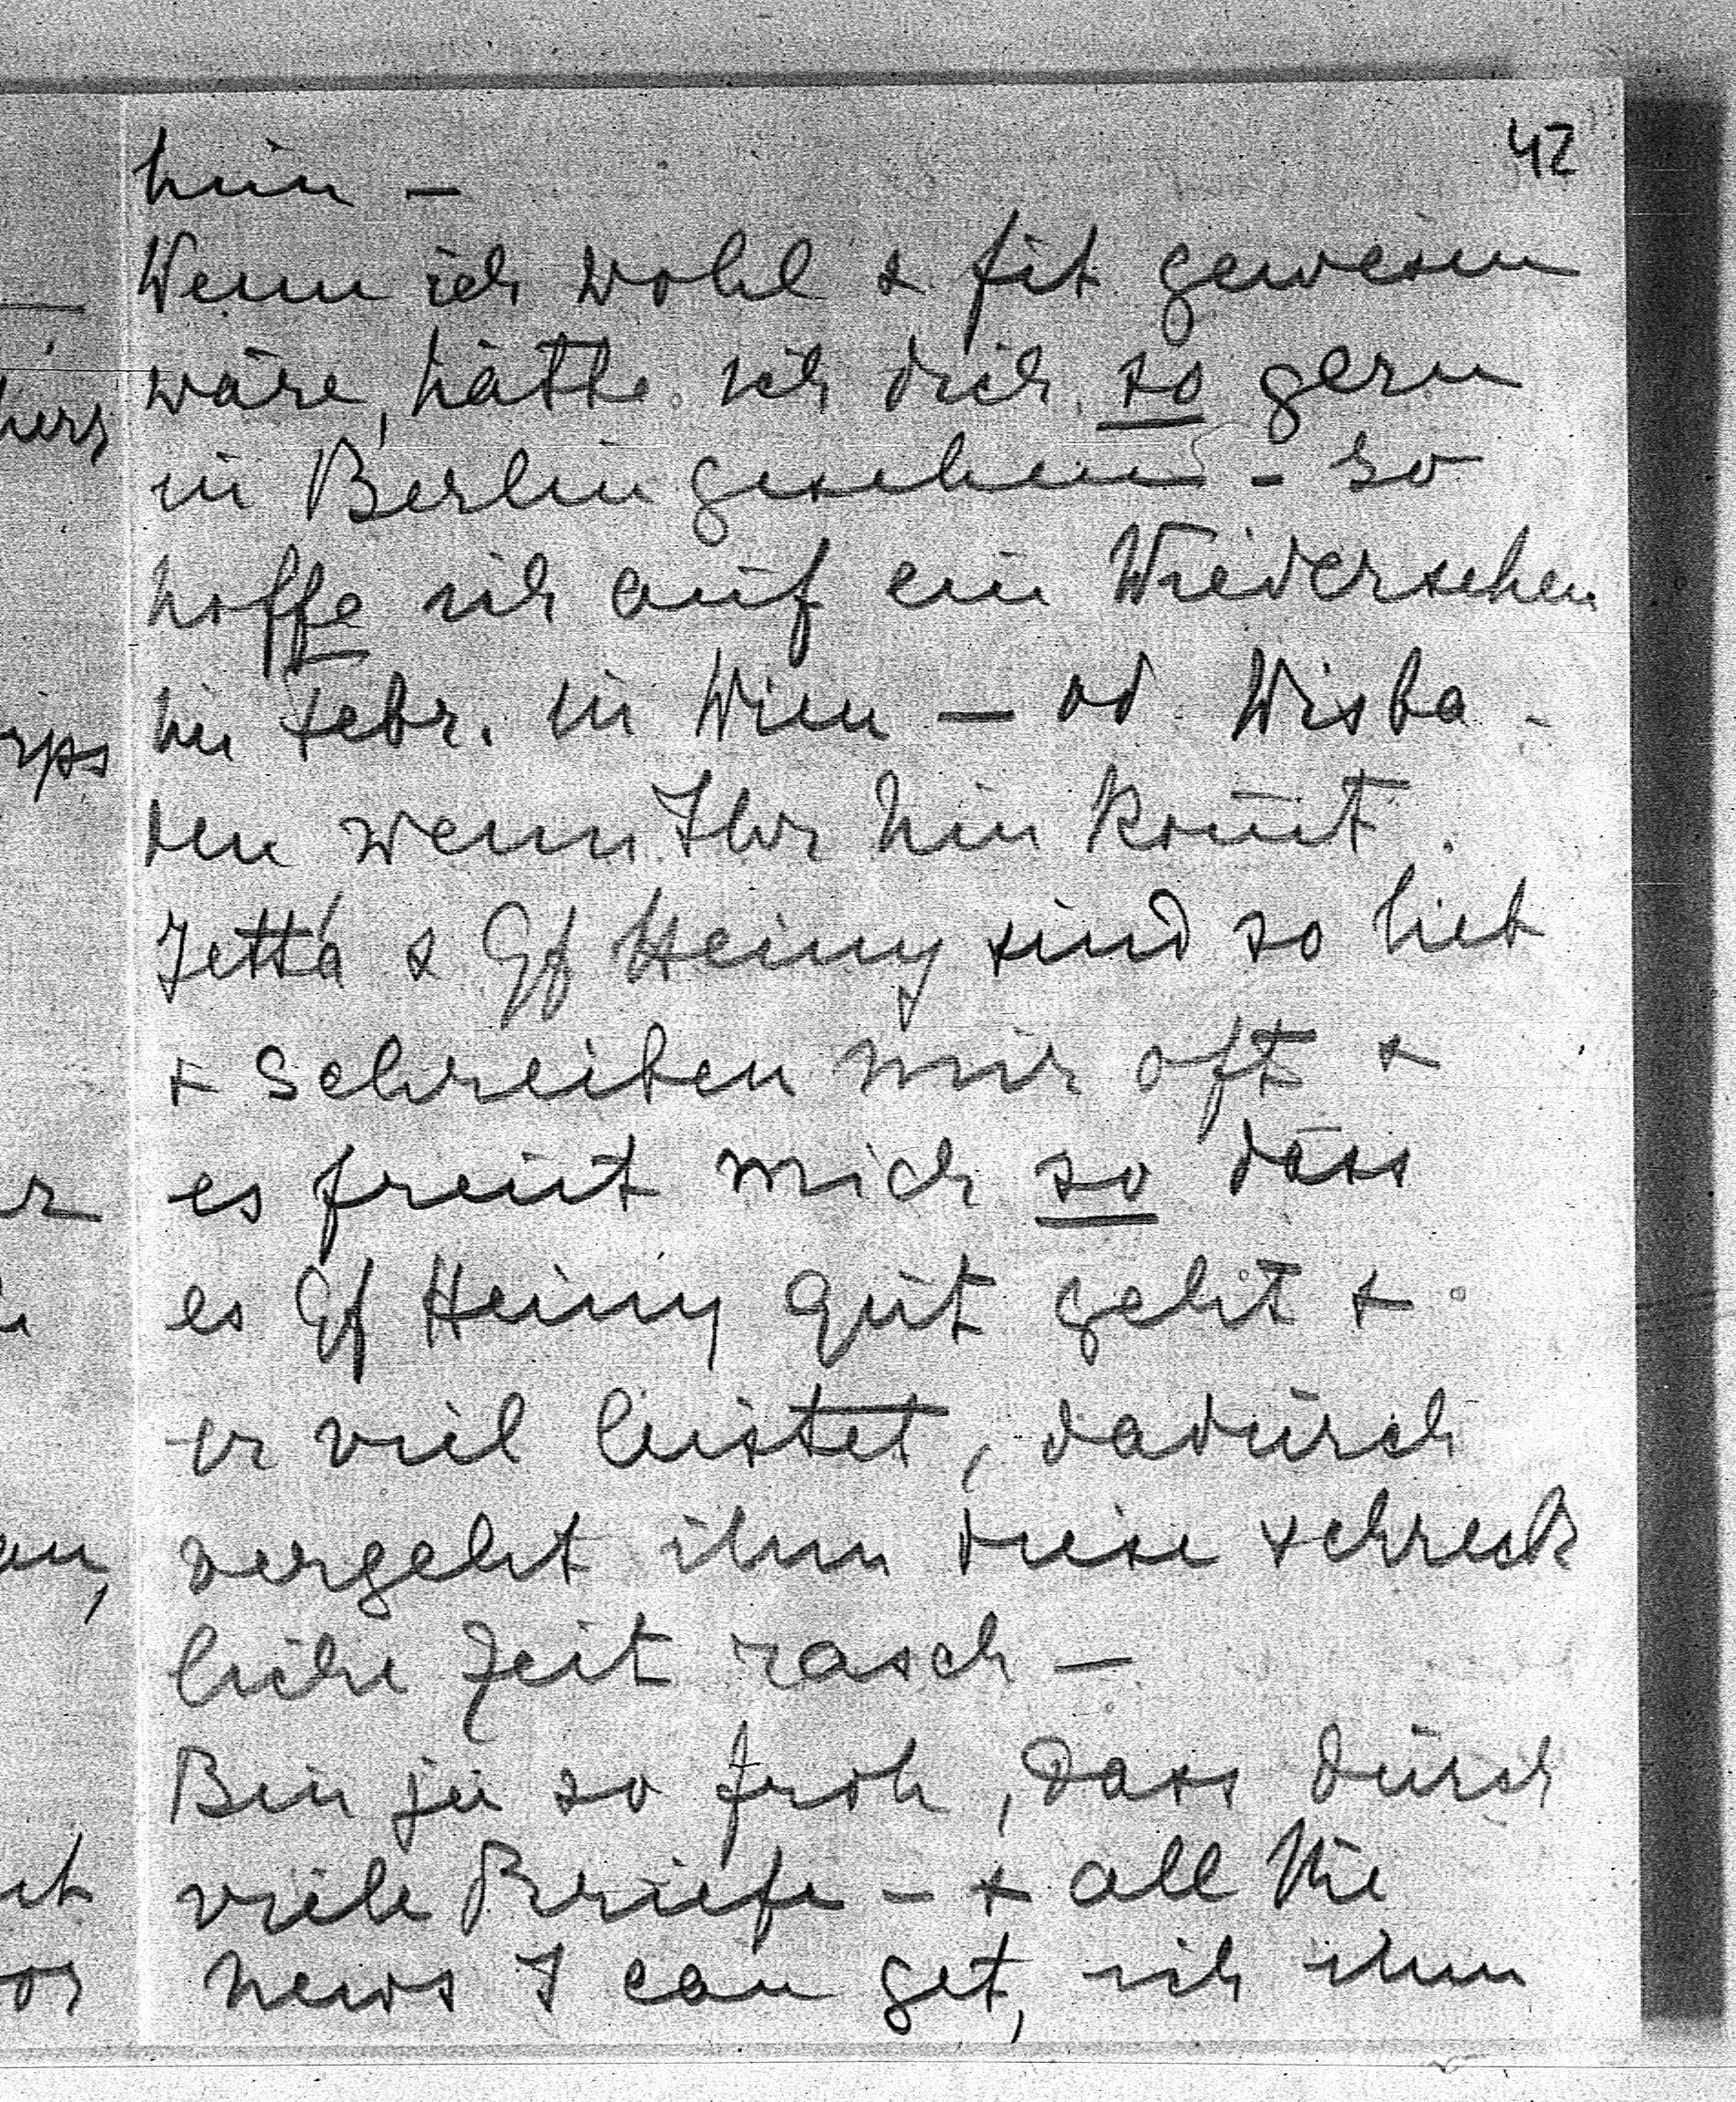 42
hin –
Wenn ich wohl & fit gewesen
wäre, hätte ich dich so gern
in Berlin gesehen – so
hoffe ich auf ein Wiedersehen
im Febr. in Wien – od. Wisba-
den wenn Ihr hin kom̄t.
Jetta & Gf Heiny sind so lieb
& schreiben mir oft &
es freut mich so dass
es Gf Heiny gut geht &
er viel leistet, dadurch
vergeht ihm diese schreck
liche Zeit rasch –
Bin ja so froh, dass durch
viele Briefe – & all the
news I can get, ich ihm